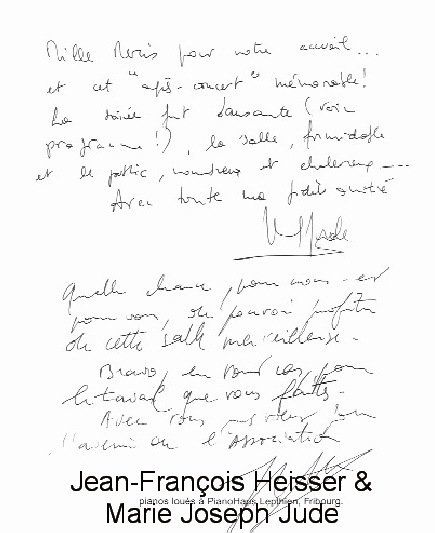 Mille Mercis pour votre accueil...
et cet "après-concert" mémorable!
La soirée fut dansante (voir
programme!), la salle, formidable
et le public, nombreux et chaleureux...
Avec toute ma fidèle amitié
Quelle chance, pour nous et
pour vous, de pouvoir profiter
de cette salle merveilleuse.
Bravo, en tout cas, pour
le travail que vous faites.
Avec tous
l'avenir de l'Association
Jean-François Heisser &
pianos loués à PianoHaus Lepthien, Fribourg.
Marie Joseph Jude